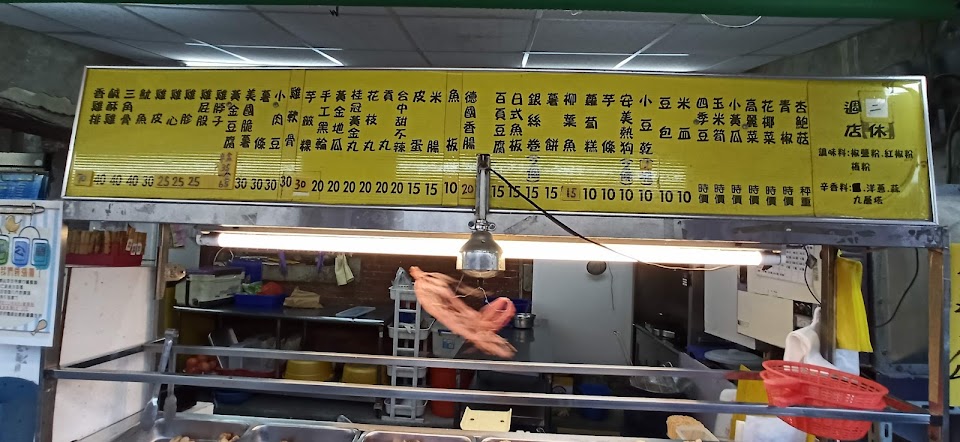 香雞排
鹹酥雞 40
三角骨 40
魷魚 40
雞皮 30
雞心 25
雞胗 25
雞屁股 25
雞脖子
黃金豆腐
美國脆薯 30
薯條 30
小肉豆 30
雞軟骨 30
芋籤粿 20
手工黑輪 20
黃金地瓜 20
桂冠黃金丸 20
花枝丸 20
貢丸 20
台中甜不辣 20
皮蛋 15
米腸 15
魚板 10
德國香腸 20
百頁豆腐 15
日式魚板 15
銀絲卷 15
薯餅 15
柳葉魚 15
蘿蔔糕 10
芋條 10
安美熱狗 10
小豆乾 10
豆包 10
米血 10
四季豆 時價
玉米筍 時價
小黃瓜 時價
高麗菜 時價
花椰菜 時價
青椒 時價
杏鮑菇 秤重
週二店休
調味料:椒鹽粉.紅椒粉
梅粉
辛香料: .洋蔥.蒜
九層塔